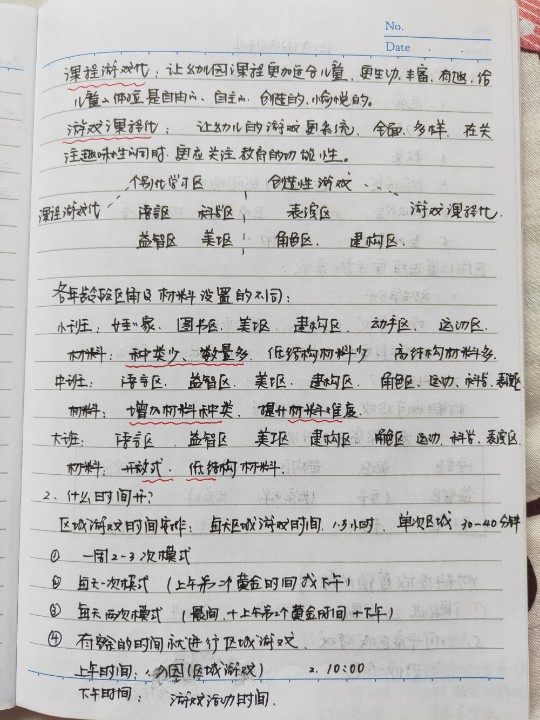 No.
Date
课程游戏化：让幼儿园课程更加适合儿童，更生动、丰富、有趣，给
儿童的体验是自由的、自主的、创造的、愉悦的。
游戏课程化：让幼儿的游戏更系统、全面、多样，在关
注趣味性同时，更应关注教育的功能性。
个别化学习区 创造性游戏
课程游戏化 语言区 科学区 表演区 游戏课程化
益智区 美工区 角色区、建构区
各年龄段区角及材料设置的不同：
小班：娃娃家、图书区、美工区、建构区、动手区、运动区
材料：种类少、数量多，低结构材料少 高结构材料多
中班：语言区、益智区、美工区、建构区、角色区、运动、科学、表演
材料：增加材料种类、提升材料难度
大班：语言区、益智区 美工区 建构区 角色区 运动、科学、表演区
材料：开放式、低结构材料
2. 什么时间开？
区域游戏时间安排：每天区域游戏时间1.5小时，单次区域30-40分钟
① 一周2-3次模式
② 每天一次模式（上午第二个黄金时间或下午）
③ 每天两次模式（晨间+上午第2个黄金时间+下午）
④ 有空余的时间就进行区域游戏
上午时间：1. 入园（区域游戏） 2. 10:00
下午时间：游戏活动时间